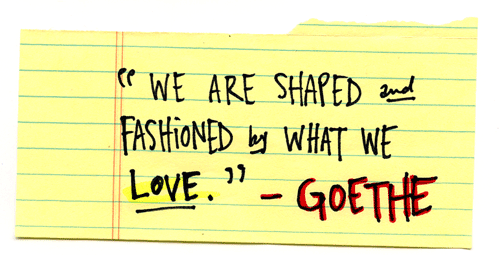 “ WE ARE SHAPED and
FASHiONED by WHAT WE
LOVE.” – GOETHE